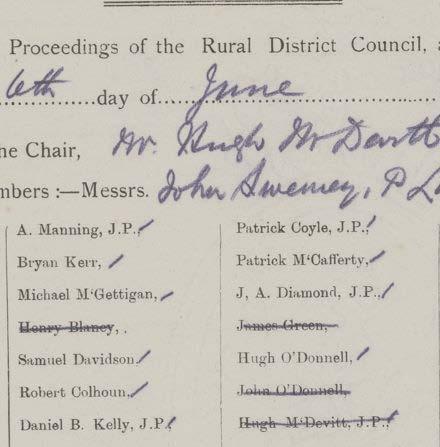 Proceedings of the Rural District Council,
6th day of June
he Chair, Mr. Hugh McDevitt
mbers :—Messrs. John Sweeney, P
A. Manning, J.P.,
Bryan Kerr,
Michael M‘Gettigan,
Henry Blaney, .
Samuel Davidson,
Robert Colhoun,
Daniel B. Kelly, J.P.,
Patrick Coyle, J.P.,
Patrick M‘Cafferty,
J, A. Diamond, J.P.,
James Green,
Hugh O'Donnell,
John O'Donnell,
Hugh M‘Devitt, J.P.,